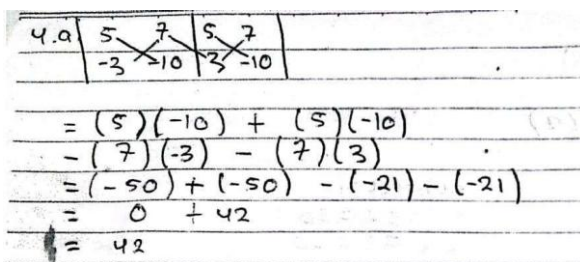 4.a | 5 7 | 5 7 |
| -3 -10 | 3 -10 |
= (5)(-10) + (5)(-10)
- (7)(-3) - (7)(3)
= (-50) + (-50) - (-21) - (-21)
= 0 + 42
= 42